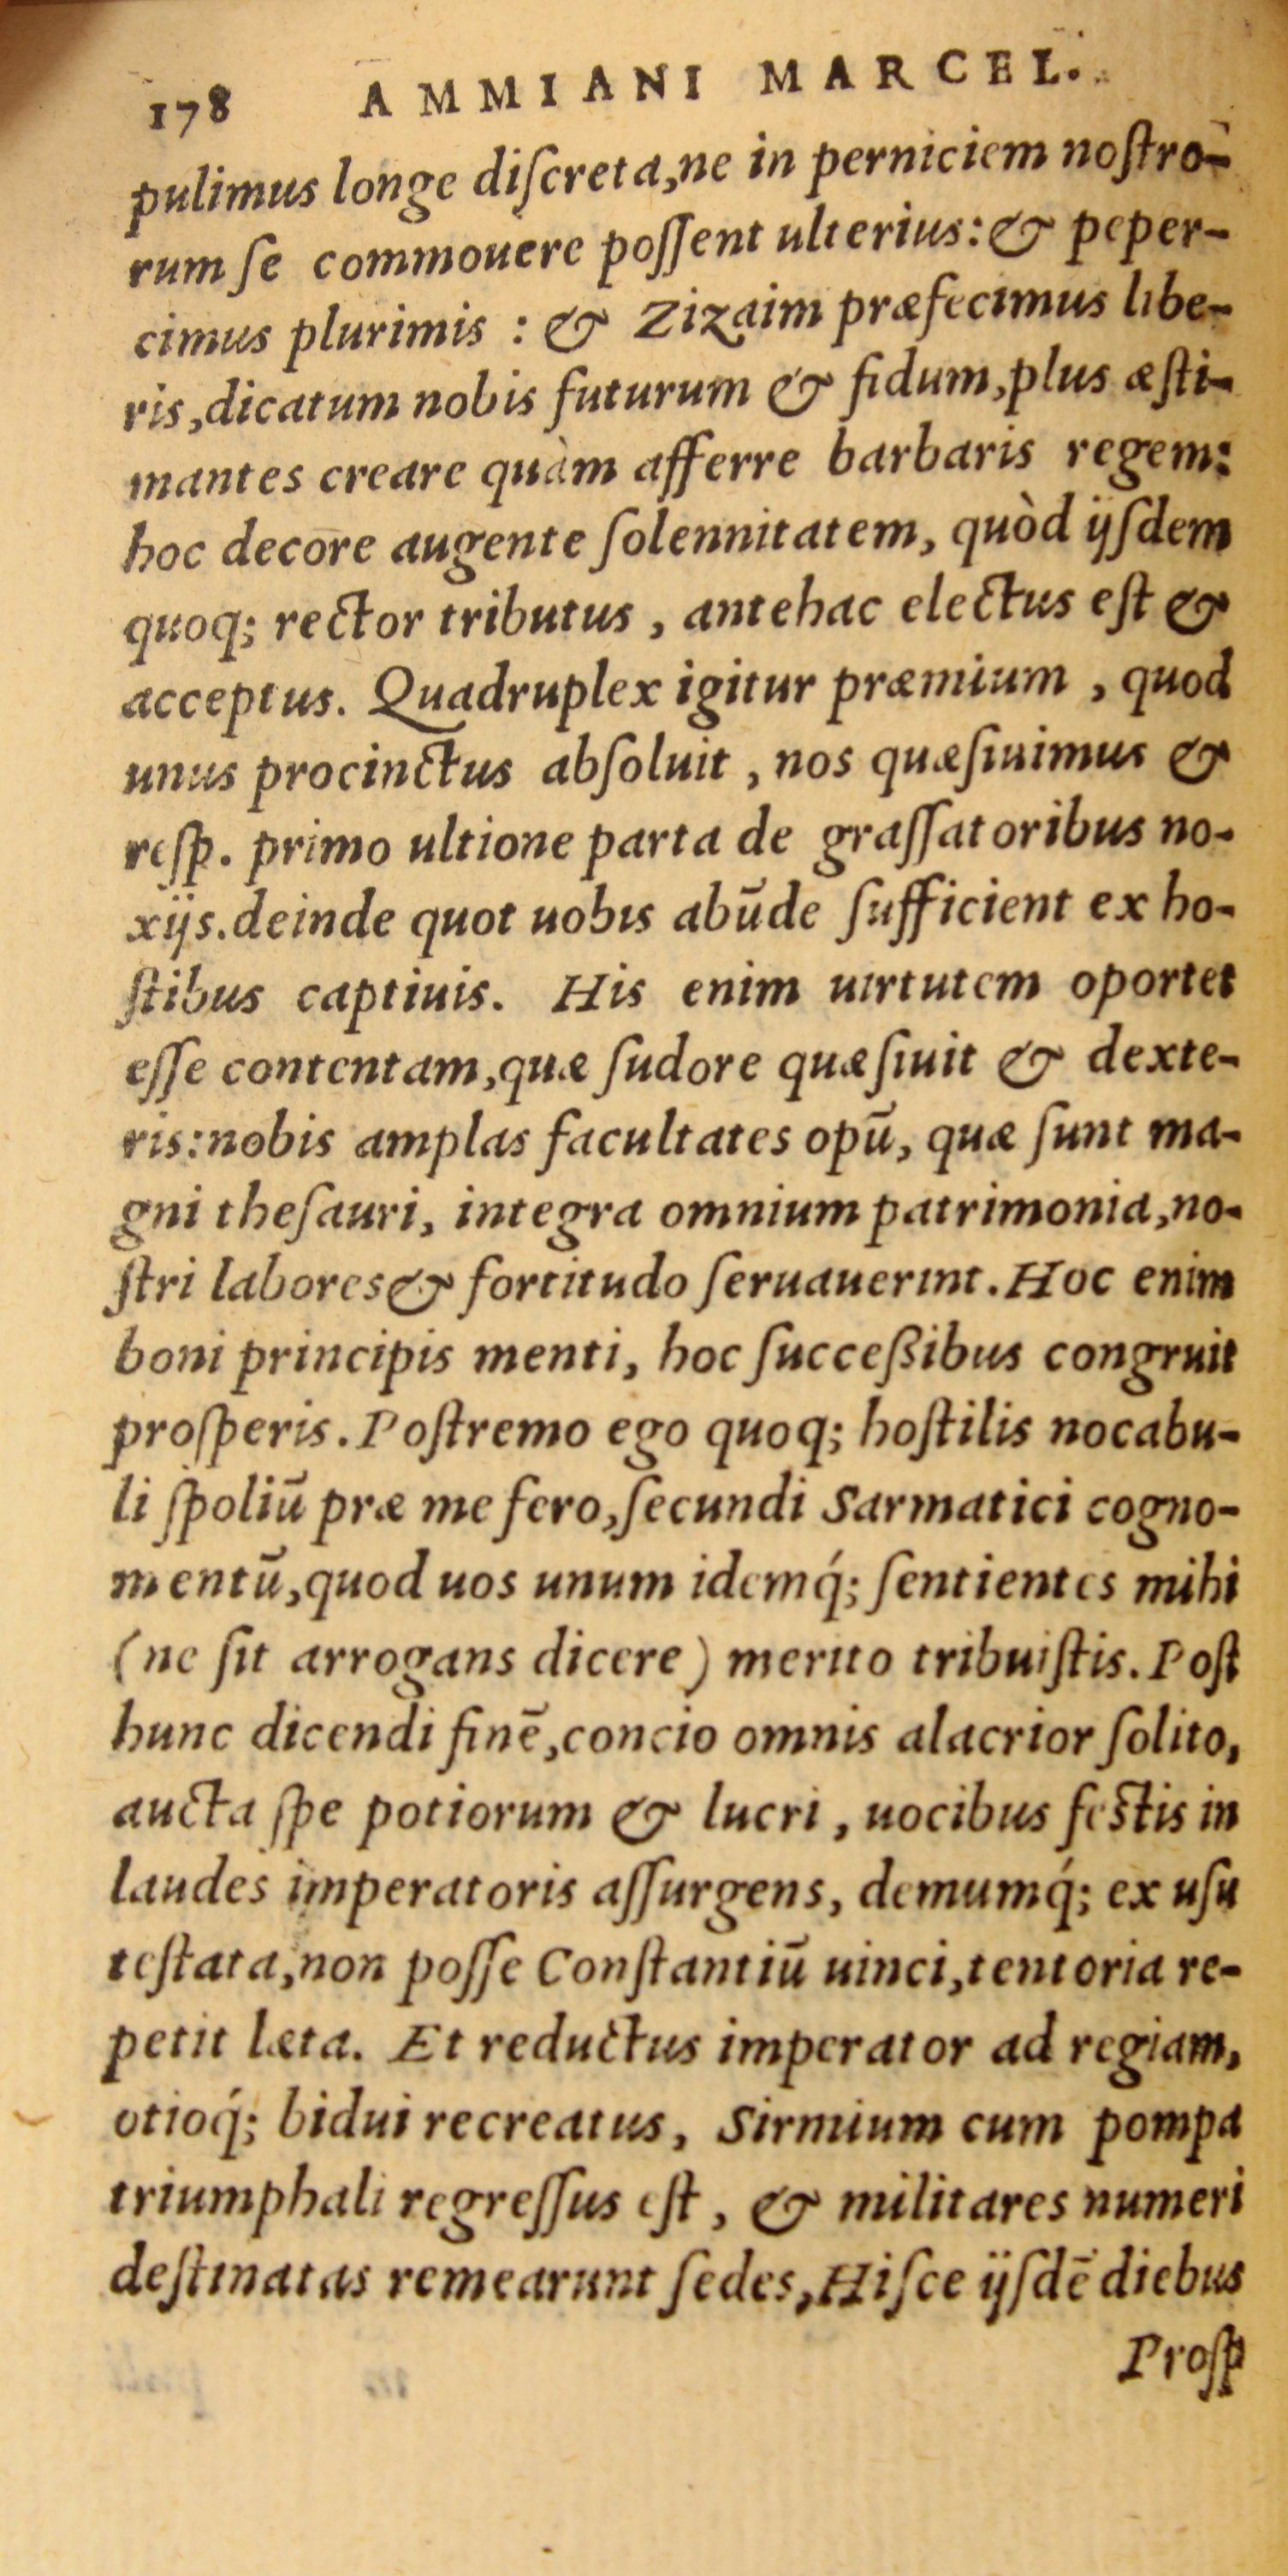 178 AMMIANI MARCEL.
pulimus longe diſcreta,ne in perniciem noſtro-
rum ſe commouere poſſent ulterius:& peper-
cimus plurimis : & Zizaim præfecimus libe-
ris,dicatum nobis futurum & fidum,plus æſti-
mantes creare quàm afferre barbaris regem:
hoc decore augente ſolennitatem, quòd ijſdem
quoq; rector tributus , antehac electus eſt &
acceptus. Quadruplex igitur præmium , quod
unus procinctus abſoluit , nos quæſiuimus &
reſp. primo ultione parta de graſſatoribus no-
xijs.deinde quot uobis abūde ſufficient ex ho-
ſtibus captiuis. His enim uirtutem oportet
eſſe contentam,quæ ſudore quæſiuit & dexte-
ris:nobis amplas facultates opū, quæ ſunt ma-
gni theſauri, integra omnium patrimonia,no-
ſtri labores& fortitudo ſeruauerint.Hoc enim
boni principis menti, hoc ſucceßibus congruit
proſperis.Poſtremo ego quoq; hoſtilis nocabu-
li ſpoliū præ me fero,ſecundi Sarmatici cogno-
mentū,quod uos unum idemq́; ſentientes mihi
(ne ſit arrogans dicere) merito tribuiſtis.Poſt
hunc dicendi finē,concio omnis alacrior ſolito,
aucta ſpe potiorum & lucri , uocibus feſtis in
laudes imperatoris aſſurgens, demumq́; ex uſu
teſtata,non poſſe Conſtantiū uinci,tentoria re-
petit læta. Et reductus imperator ad regiam,
otioq́; bidui recreatus, Sirmium cum pompa
triumphali regreſſus eſt , & militares numeri
deſtinatas remearunt ſedes,Hiſce ijſdē diebus
Proſp